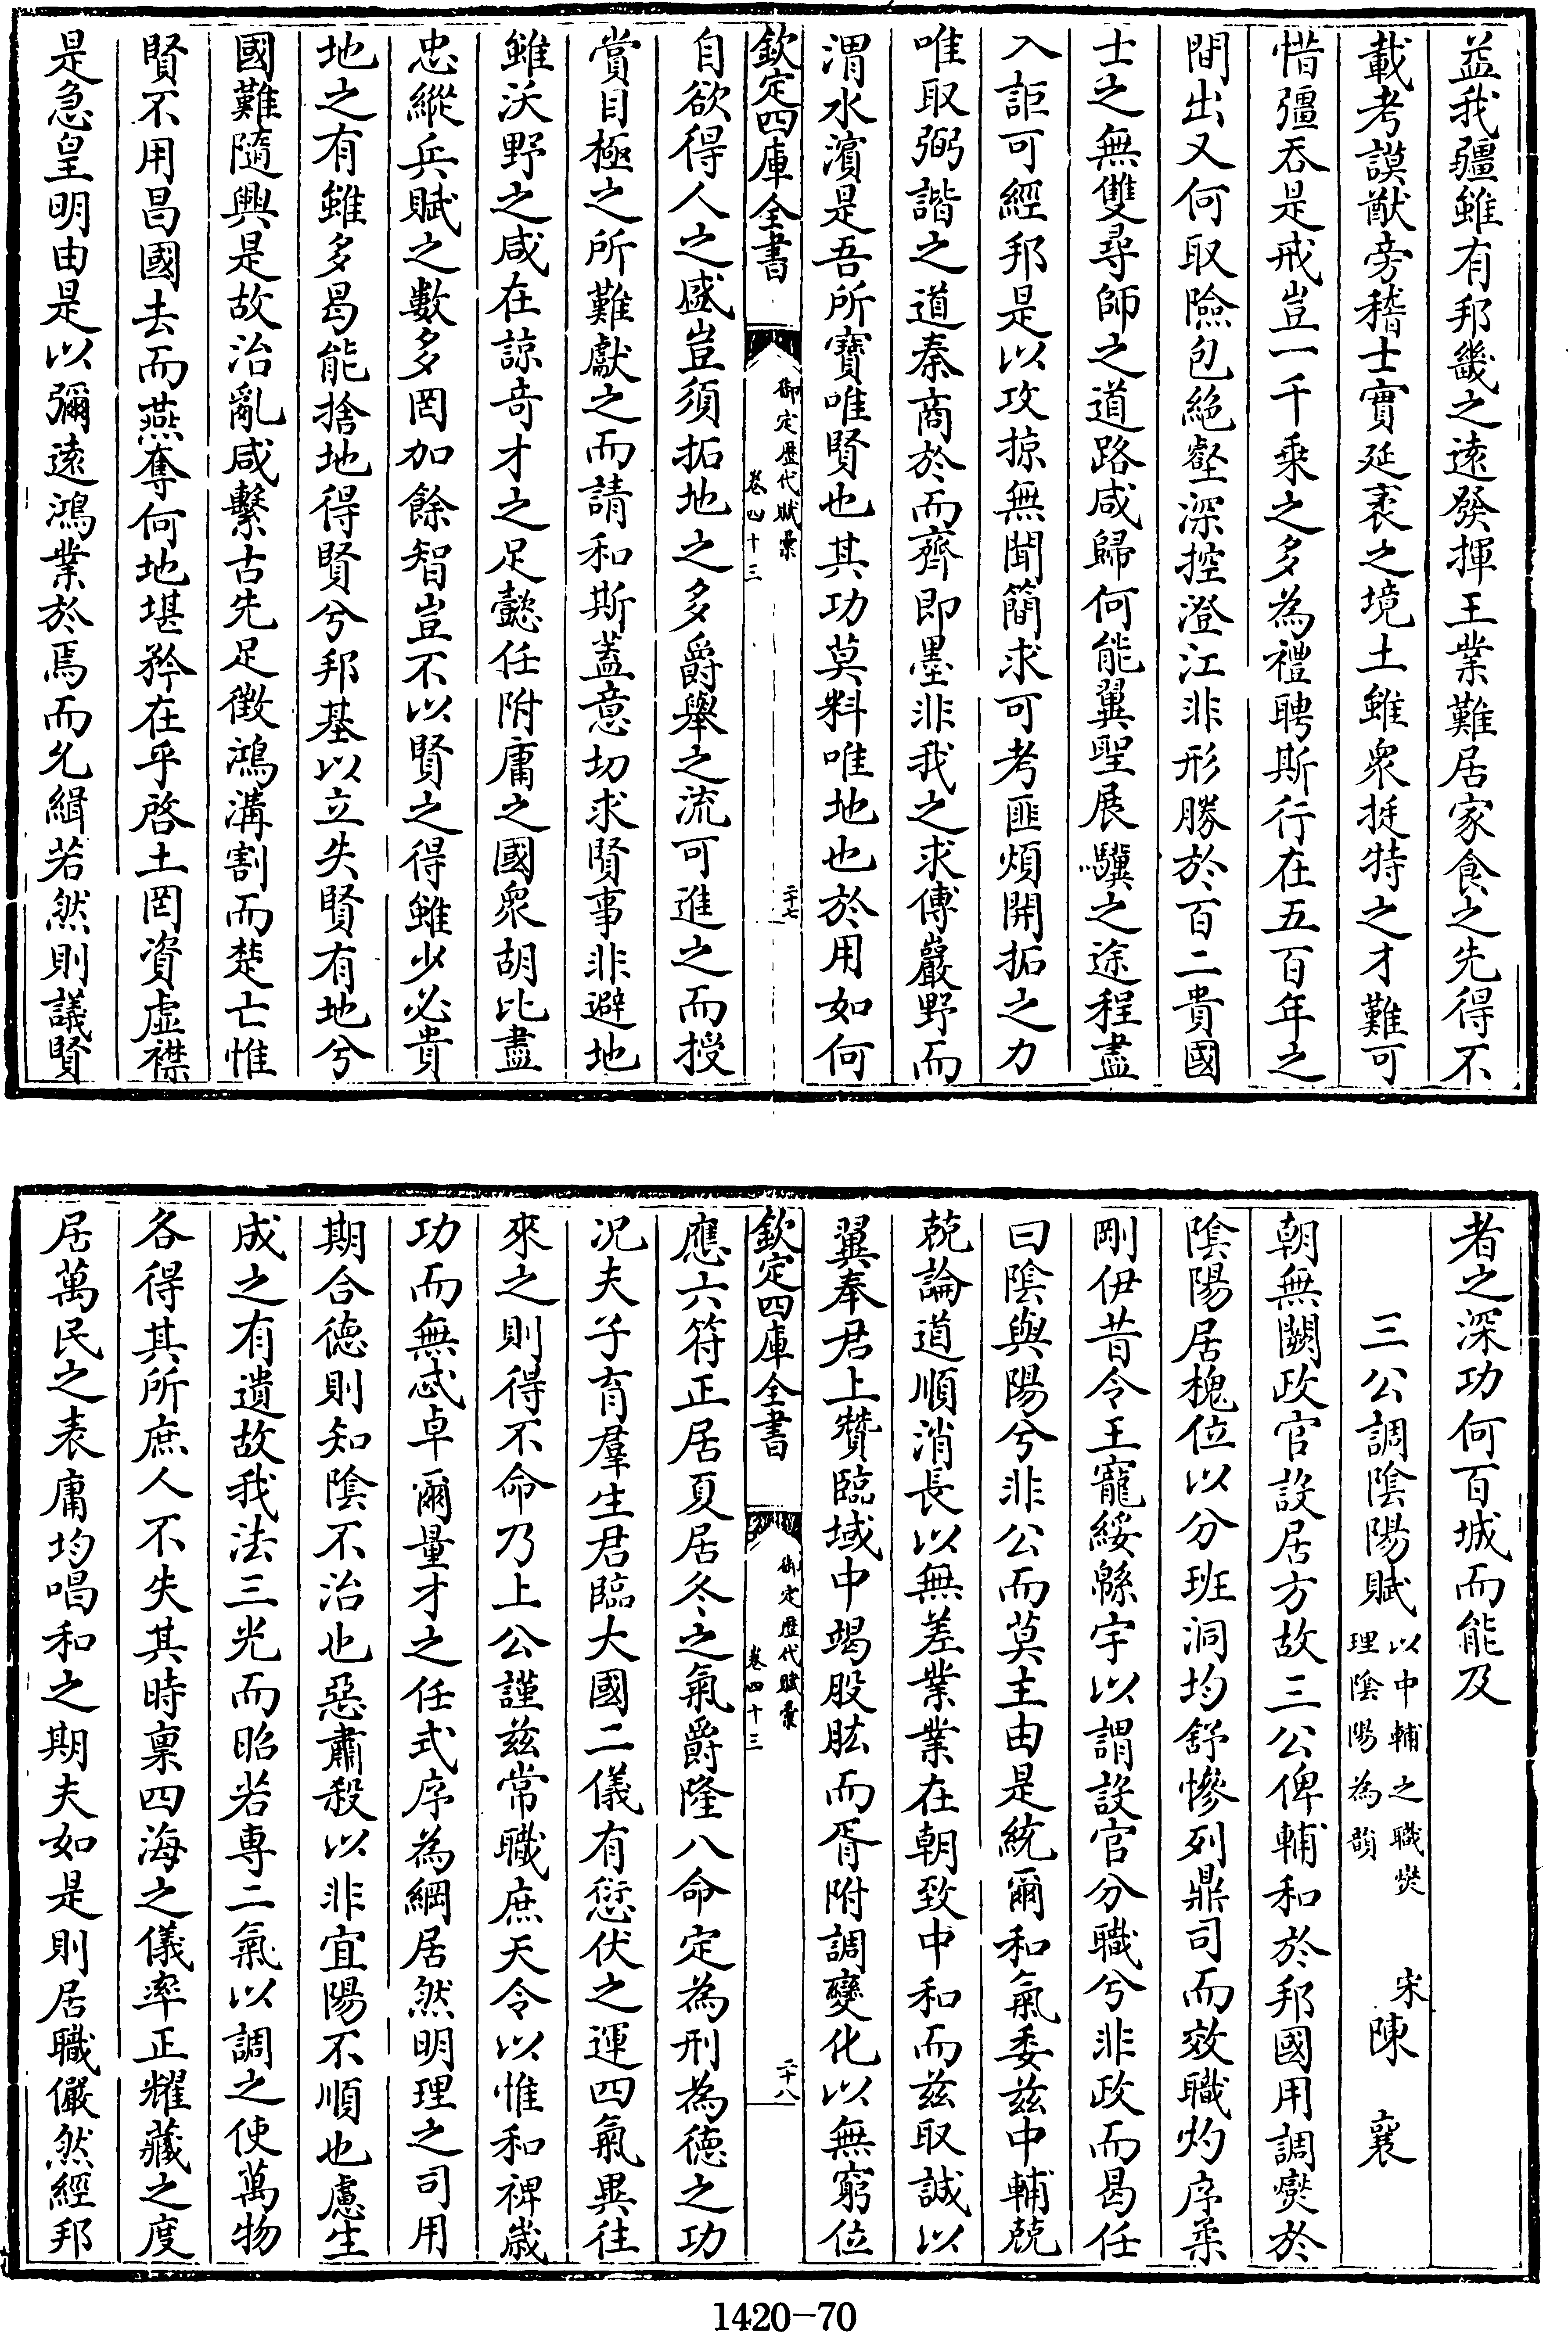 益我疆雖有邦畿之遠發揮王業難居家食之先得不
載考謨猷旁稽士實延袤之境土雖衆挺特之才難可
惜彊吞是戒豈一千乘之多為禮聘斯行在五百年之
間出又何取險包絶壑深控澄江非形勝於百二貴國
士之無雙尋師之道路咸歸何能翼聖展驥之途程盡
入詎可經邦是以攻掠無聞簡求可考匪煩開拓之力
唯取弼諧之道秦商於而齊即墨非我之求傅巖野而
渭水濱是吾所寶唯賢也其功莫料唯地也於用如何
欽定四庫全書
御定歷代賦彙
卷四十三
二十七
自欲得人之盛豈須拓地之多爵舉之流可進之而授
賞目極之所難獻之而請和斯蓋意切求賢事非避地
雖沃野之咸在諒奇才之足懿任附庸之國衆胡比盡
忠縱兵賦之數多罔加餘智豈不以賢之得雖少必貴
地之有雖多曷能捨地得賢兮邦基以立失賢有地兮
國難隨興是故治亂咸繫古先足徵鴻溝割而楚亡惟
賢不用昌國去而燕奪何地堪矜在乎啓土罔資虛襟
是急皇明由是以彌遠鴻業於焉而允緝若然則議賢
者之深功何百城而能及
三公調陰陽賦
以中輔之職燮
理陰陽為韻
宋陳襄
朝無闕政官設居方故三公俾輔和於邦國用調燮於
陰陽居槐位以分班洞均舒慘列鼎司而效職灼序柔
剛伊昔令王寵綏緜宇以謂設官分職兮非政而曷任
曰陰與陽兮非公而莫主由是統爾和氣委茲中輔兢
兢論道順消長以無差業業在朝致中和而茲取誠以
翼奉君上贊臨域中竭股肱而胥附調變化以無窮位
欽定四庫全書
御定歷代賦彙
卷四十三
二十八
應六符正居夏居冬之氣爵隆八命定為刑為德之功
况夫子育羣生君臨大國二儀有愆伏之運四氣異往
來之則得不命乃上公謹茲常職庶天令以惟和裨歲
功而無忒卓爾量才之任式序為綱居然明理之司用
期合德則知陰不治也惡肅殺以非宜陽不順也慮生
成之有遺故我法三光而昭若專二氣以調之使萬物
各得其所庶人不失其時稟四海之儀率正耀藏之度
居萬民之表庸均唱和之期夫如是則居職儼然經邦
1420-70